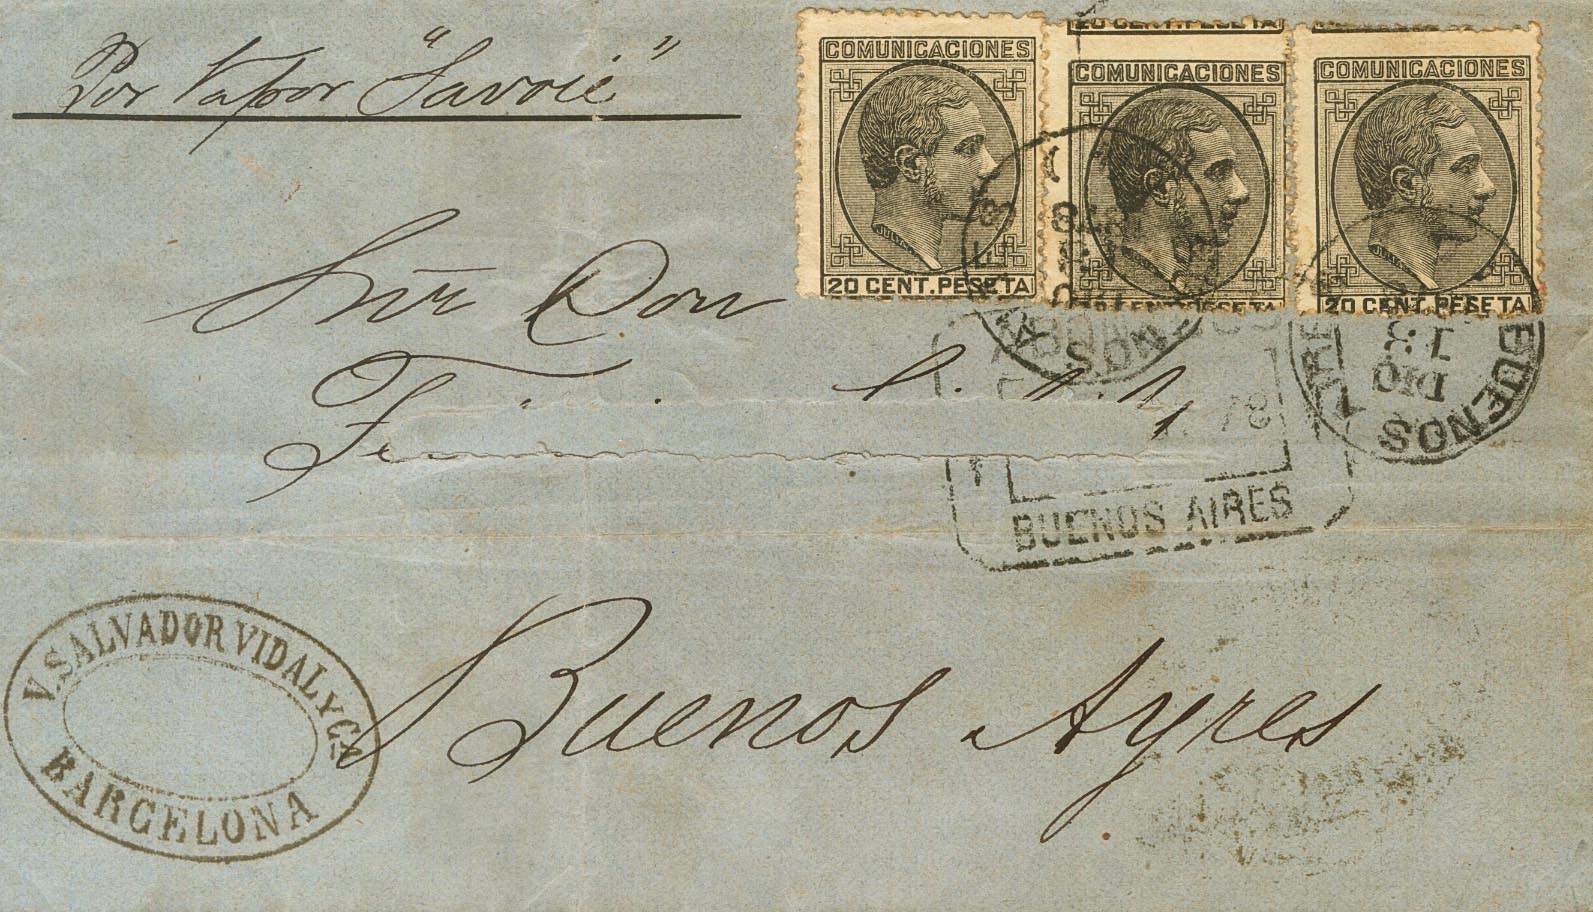 Por Vapor "Savoie"
COMUNICACIONES
20 CENT. PESETA
20 CENT. PESETA
COMUNICACIONES
COMUNICACIONES
20 CENT. PESETA
JULIA
Sñr Don
BUENOS
DIC
18
BUENOS AIRES
V. SALVADOR VIDAL Y CA
BARCELONA
Buenos Ayres